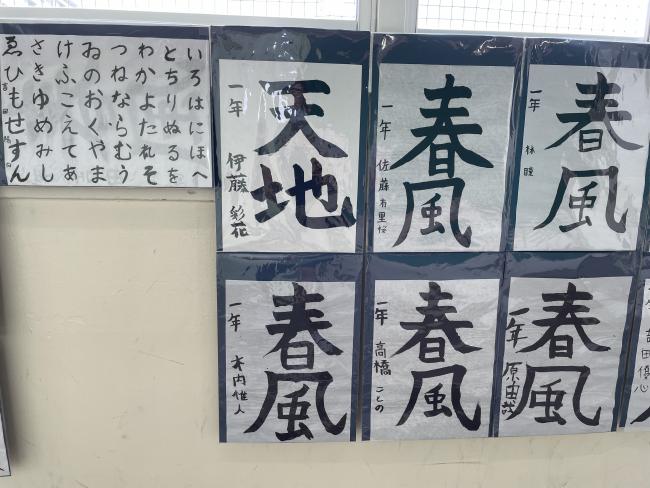 いろはにほへ
とちりぬるを
わかよたれそ
つねならむう
ゐのおくやま
けふこえてあ
さきゆめみし
ゑひもせすん
天地
一年 伊藤 彩花
春風
一年 佐藤 有里桜
春風
一年 林 睦
春風
一年 木内 惟人
春風
一年 高橋 ことの
春風
一年 原田